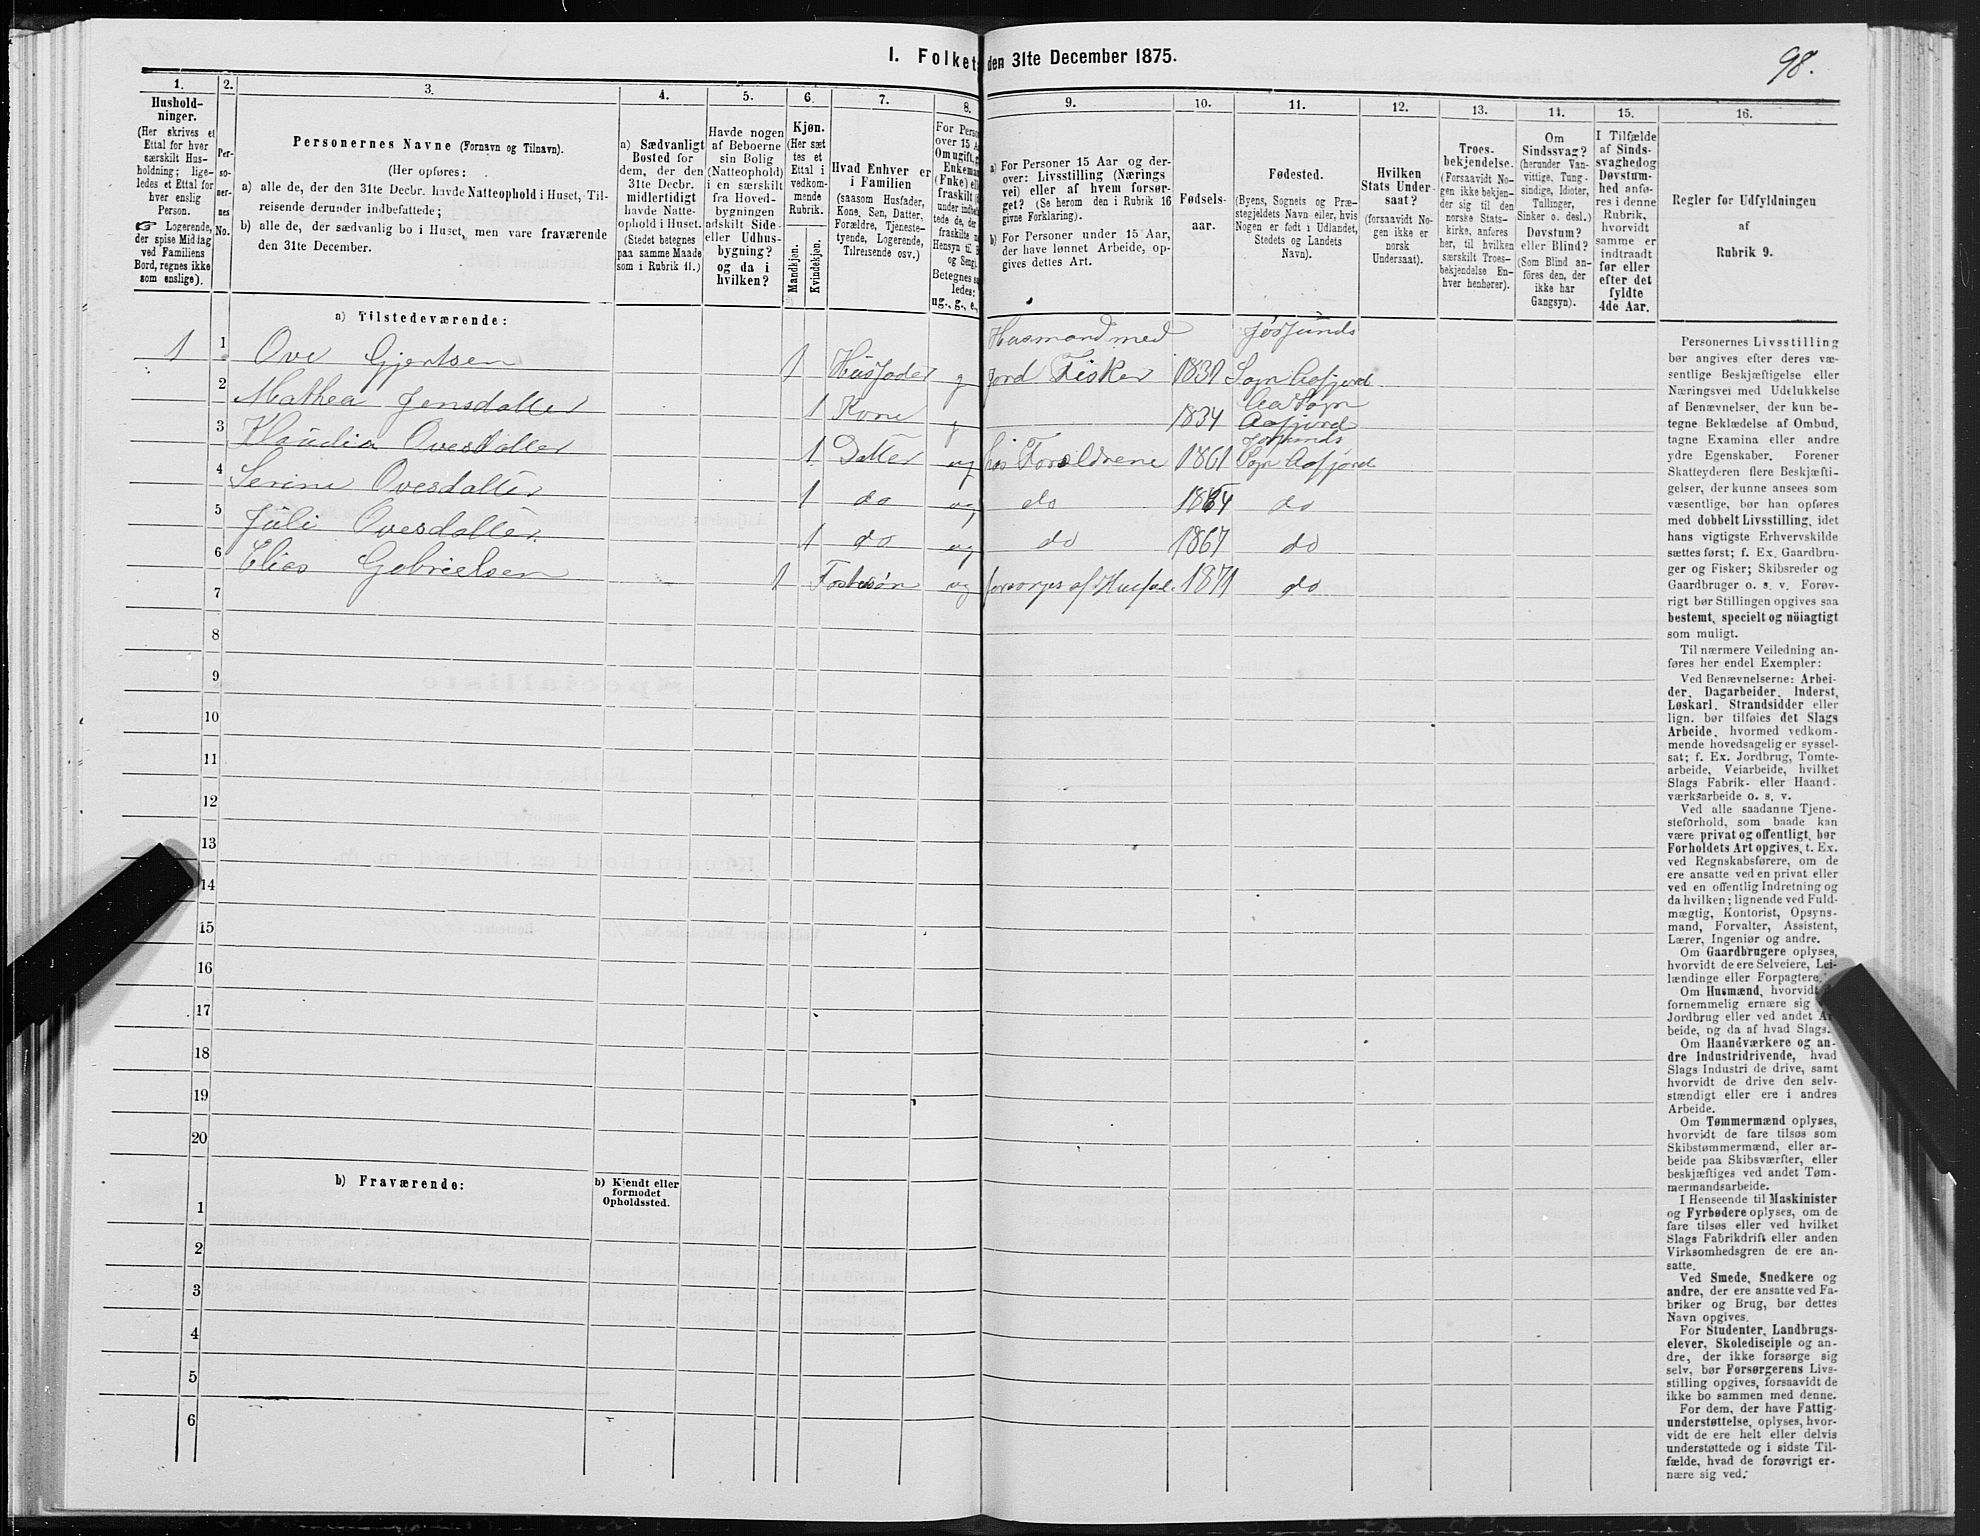 I. Folket
den 31te December 1875.
98.
1.
Hushold-
ninger.
(Her skrives et
Ettal for hver
særskilt Hus-
holdning; lige-
ledes et Ettal for
hver enslig
Person.
☞ Logerende,
der spise Middag
ved Familiens
Bord, regnes ikke
som enslige).
2.
Per-
so-
ner-
nes
No.
3.
Personernes Navne (Fornavn og Tilnavn).
(Her opføres:
a) alle de, der den 31te Decbr. havde Natteophold i Huset, Til-
reisende derunder indbefattede;
b) alle de, der sædvanlig bo i Huset, men vare fraværende
den 31te December.
4.
a) Sædvanligt
Bosted for
dem, der den
31te Decbr.
midlertidigt
havde Natte-
ophold i Huset.
(Stedet betegnes
paa samme Maade
som i Rubrik 11.)
5.
Havde nogen
af Beboerne
sin Bolig
(Natteophold)
i en særskilt
fra Hoved-
bygningen
adskilt Side-
eller Udhus-
bygning?
og da i
hvilken?
6.
Kjøn.
(Her sæt
tes et
Ettal i
vedkom-
mende
Rubrik.
Mandkjøn.
Kvindekjøn.
7.
Hvad Enhver er
i Familien
(saasom Husfader,
Kone, Søn, Datter,
Forældre, Tjeneste-
tyende, Logerende,
Tilreisende osv.)
8.
For Perso
over 15 A
Om ugift, g
Enkeman
(Enke) ell
fraskilt (
under indbef
tede de, de
fraskilte
Hensyn til B
og Seng).
Betegnes s
ledes:
ug., g., e.,
9.
a) For Personer 15 Aar og der-
over: Livsstilling (Nærings
vei) eller af hvem forsør-
get? (Se herom den i Rubrik 16
givne Forklaring).
b) For Personer under 15 Aar,
der have lønnet Arbeide, op-
gives dettes Art.
10.
Fødsels-
aar.
11.
Fødested.
(Byens, Sognets og Præ-
stegjeldets Navn eller, hvis
Nogen er født i Udlandet,
Stedets og Landets
Navn).
12.
Hvilken
Stats Under-
saat?
(forsaavidt No-
gen ikke er
norsk
Undersaat).
13.
Troes-
bekjendelse.
(Forsaavidt No-
gen ikke bekjen-
der sig til den
norske Stats-
kirke, anføres
her, til hvilken
særskilt Troes-
bekjendelse En-
hver henhører).
14.
Om
Sindssvag?
(herunder Van-
vittige, Tung-
sindige, Idioter,
Tullinger,
Sinker o. desl.)
Døvstum?
eller Blind?
(Som Blind an-
føres den, der
ikke har
Gangsyn).
15.
I Tilfælde
af Sinds-
svaghed og
Døvstum-
hed anfø-
res i denne
Rubrik,
hvorvidt
samme er
indtraadt
før eller
efter det
fyldte
4de Aar.
16.
Regler for Udfyldningen
af
Rubrik 9.
a) Tilstedeværende:
1 1 Ove Gjertsen 1 Husfader g Husmand med
jord Fisker 1830 Jøssunds
Sogn Aafjord
2 Mathea Jensdatter 1 Kone g 1834 Aa Sogn
Aafjord
3 Klaudia Ovesdatter 1 Datter ug hos Forældrene 1861 Jøssunds
Sogn Aafjord
4 Serine Ovesdatter 1 do ug do 1864 do
5 Juli Ovesdatter 1 do ug do 1867 do
6 Elias Gabrielsen 1 Fostersøn ug forsørges af Husfad. 1871 do
7
8
9
10
11
12
13
14
15
16
17
18
19
20
b) Fraværende:
b) Kjendt eller
formodet
Opholdssted.
1
2
3
4
5
6
Personernes Livsstilling
bør angives efter deres væ-
sentlige Beskjæftigelse eller
Næringsvei med Udelukkelse
af Benævnelser, der kun be-
tegne Beklædelse af Ombud,
tagne Examina eller andre
ydre Egenskaber. Forener
Skatteyderen flere Beskjæfti-
gelser, der kunne ansees som
væsentlige, bør han opføres
med dobbelt Livsstilling, idet
hans vigtigste Erhvervskilde
sættes først; f. Ex. Gaardbru-
ger og Fisker; Skibsreder og
Gaardbruger o. s. v. Forøv-
rigt bør Stillingen opgives saa
bestemt, specielt og nøiagtigt
som muligt.
Til nærmere Veiledning an-
føres her endel Exempler:
Ved Benævnelserne: Arbei-
der, Dagarbeider, Inderst,
Løskarl, Strandsidder eller
lign. bør tilføies det Slags
Arbeide, hvormed vedkom-
mende hovedsagelig er syssel-
sat; f. Ex. Jordbrug, Tomte-
arbeide, Veiarbeide, hvilket
Slags Fabrik- eller Haand-
værksarbeide o. s. v.
Ved alle saadanne Tjene-
steforhold, som baade kan
være privat og offentligt, bør
Forholdets Art opgives, t. Ex.
ved Regnskabsførere, om de
ere ansatte ved en privat eller
ved en offentlig Indretning og
da hvilken; lignende ved Fuld-
mægtig, Kontorist, Opsyns-
mand, Forvalter, Assistent,
Lærer, Ingeniør og andre.
Om Gaardbrugere oplyses,
hvorvidt de ere Selveiere, Lei-
lændinge eller Forpagtere.
Om Husmænd, hvorvidt
fornemmelig ernære sig
Jordbrug eller ved andet Ar
beide, og da af hvad Slags.
Om Haandværkere og an-
dre Industridrivende, hvad
Slags Industri de drive, samt
hvorvidt de drive den selv-
stændigt eller ere i andres
Arbeide.
Om Tømmermænd oplyses,
hvorvidt de fare tilsøs som
Skibstømmermænd, eller ar-
beide paa Skibsværfter, eller
beskjæftiges ved andet Tøm-
mermandsarbeide.
I Henseende til Maskinister
og Fyrbødere oplyses, om de
fare tilsøs eller ved hvilket
Slags Fabrikdrift eller anden
Virksomhedsgren de ere an-
satte.
Ved Smede, Snedkere og
andre, der ere ansatte ved Fa-
briker og Brug, bør dettes
Navn opgives.
For Studenter, Landbrugs-
elever, Skoledisciple og an-
dre, der ikke forsørge sig
selv, bør Forsørgerens Livs-
stilling opgives, forsaavidt de
ikke bo sammen med denne.
For dem, der have Fattig-
understøttelse, oplyses, hvor-
vidt de ere helt eller delvis
understøttede og i sidste Til-
fælde, hvad de forøvrigt er-
nære sig ved.